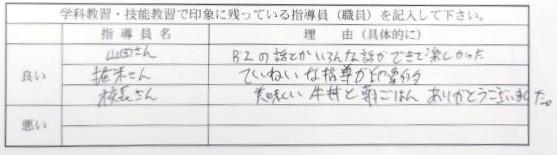 学科教習・技能教習で印象に残っている指導員(職員)を記入して下さい。
指導員名 理由(具体的に)
良い
山田さん B'zの話とかいろんな話ができて楽しかった
植木さん ていねいな指導が印象的
さん 美味しい牛丼と朝ごはんありがとうございました。
悪い